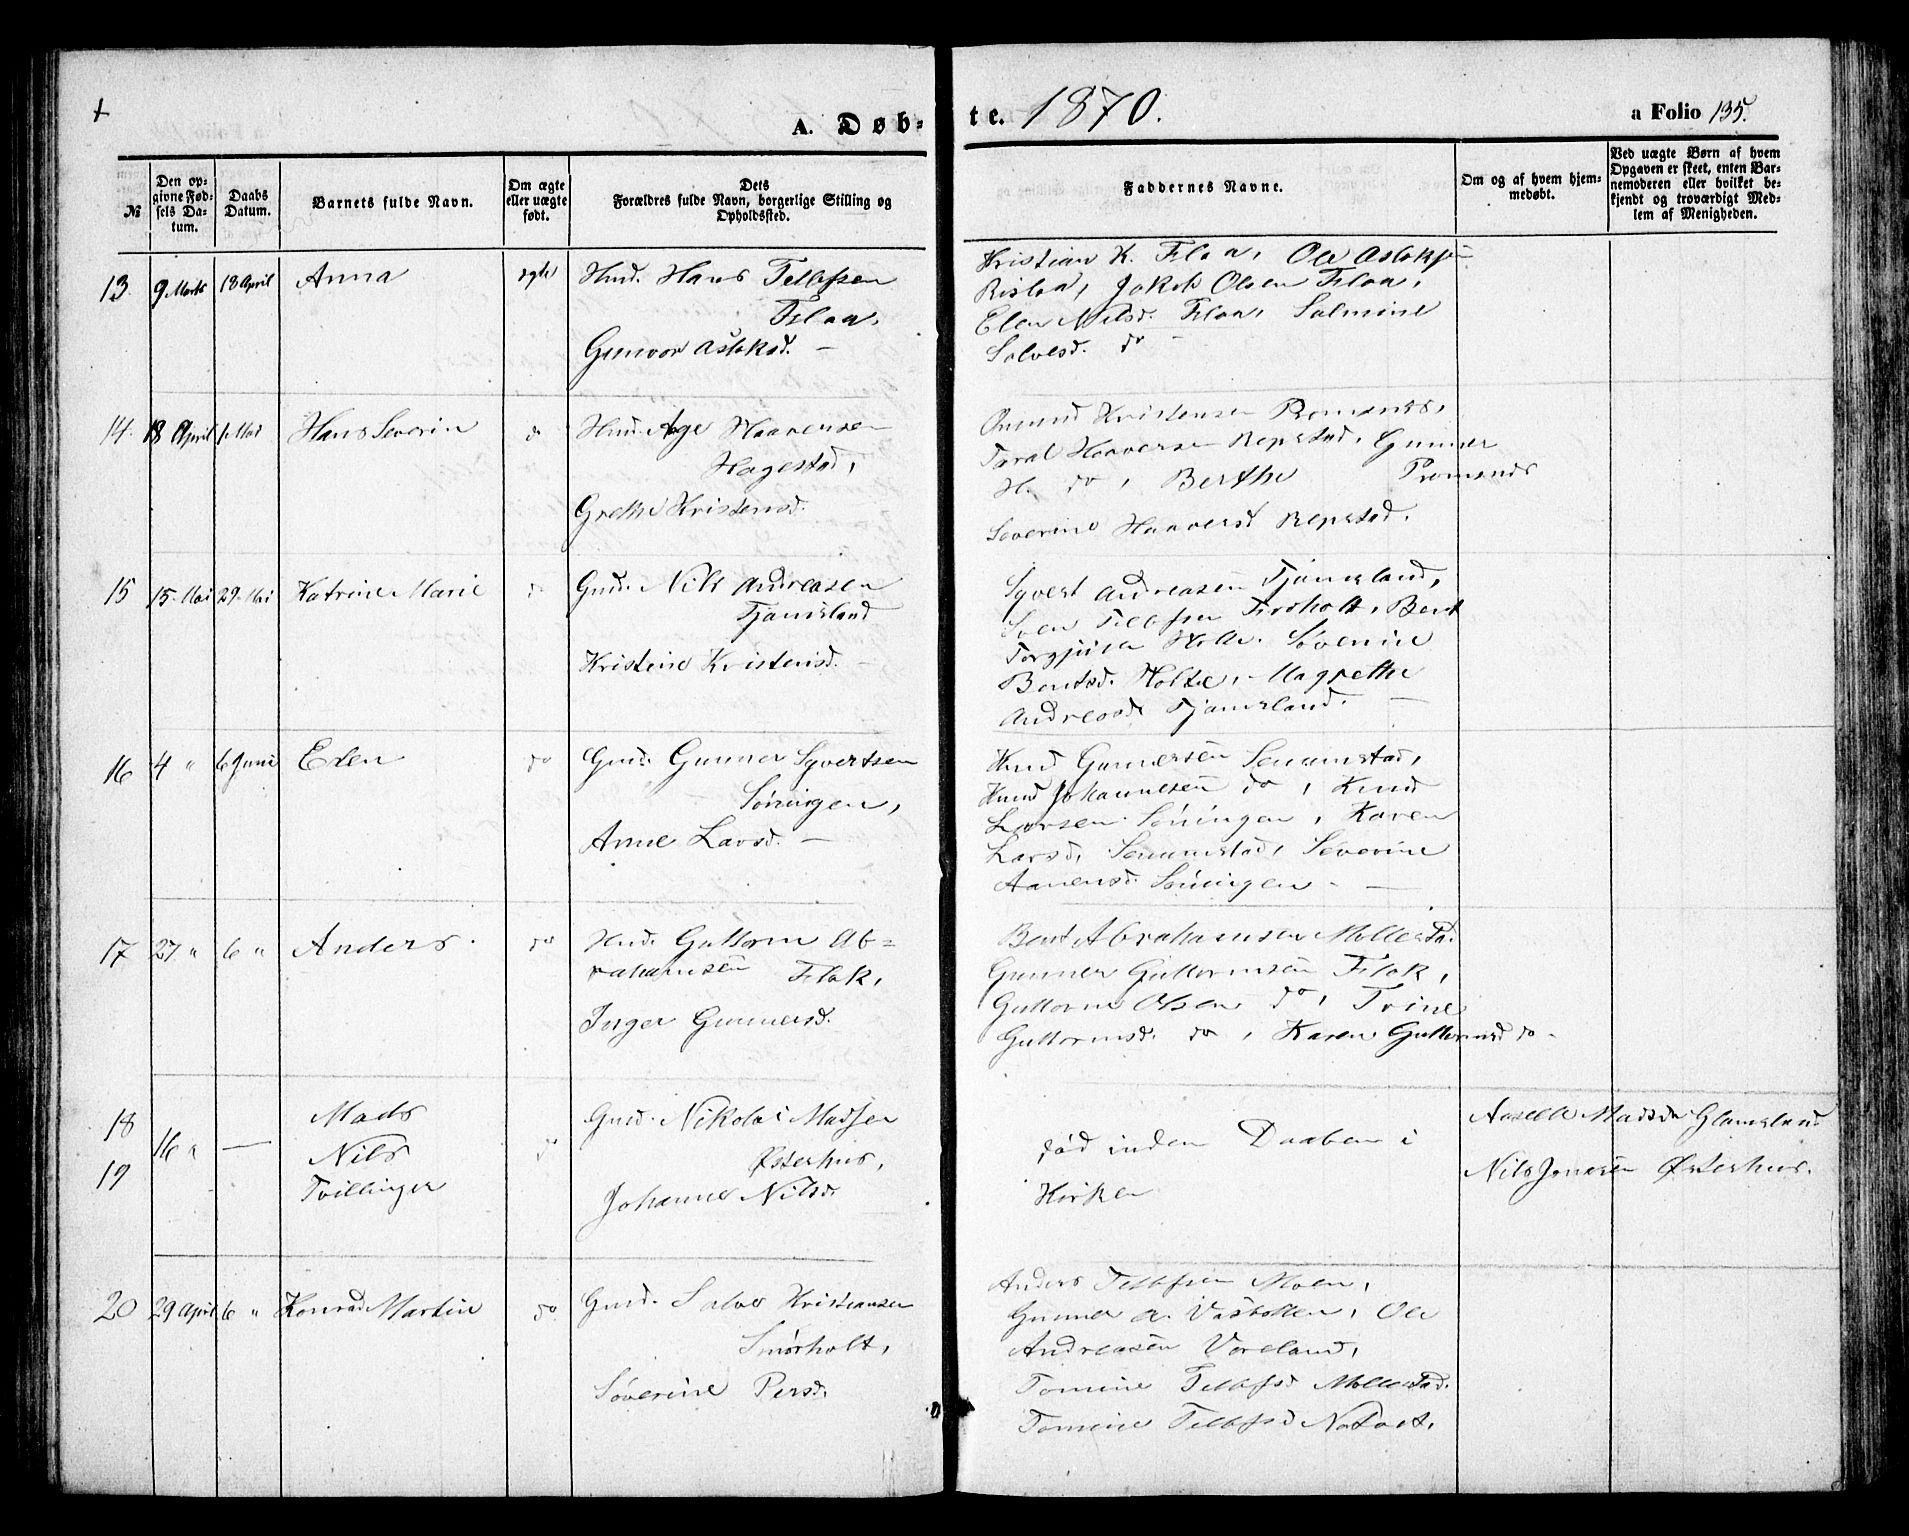 A. Døb-
te. 1870.
a Folio 135.
№
Den opgivne Fødsels Datum.
Daabs Datum.
Barnets fulde Navn.
Om ægte eller uægte født.
Dets Forældres fulde Navn, borgerlige Stilling og Opholdssted.
Faddernes Navne.
Om og af hvem hjemmedøbt.
Ved uægte Børn af hvem Opgaven er skeet, enten Barnemoderen eller hvilket bekjendt og troværdigt Medlem af Menigheden.
13. 9 Marts 18 April Anna ægte
Hmd. Hans Tellefsen
Flaa,
Gunvor Aslaksd. —
Kristian K. Flaa, Ole Aslaksen
Risløa, Jakob Olsen Flaa,
Elen Nilsd. Flaa, Salmine
Salvesd. do —
14. 18 April 1 Mai Hans Severin do
Hmd. Age Haaversen
Hagestad,
Grethe Kristensd.
Omund Kristensen Promenes,
Taral Haaversen Repstad, Gunner
H. do, Berthe Promenes
Severine Haaversd Repstad.
15 15 Mai 29 Mai Katrine Marie do
Gmd. Nils Andreasen
Tjamsland
Kristine Kristensd. —
Syvert Andreasen Tjamsland,
Sven Tellefsen Holte, Bent
Holte, Søverine
Bentsd. Holte, Magrethe
Andreasd Tjamsland. —
16 4 " 6 Juni Elen do
Gmd. Gunner Syvertsen
Søningen,
Anne Larsd. —
Knud Gunnersen Senumstad,
Knud Johannesen do, Knud
Larsen Søningen, Karen
Larsd, Senumstad, Severine
Aanensd. Søningen —
17 27 " 6 " Anders do
Hmd. Guttorm Ab-
rahamsen Flak,
Inger Gunnersd.
Bent Abrahamsen Mollestad.
Gunner Guttormsen Flak,
Guttorm Olsen do, Trine
Guttormsd. do, Karen Guttormsd do —
18
19
16 " —
Mads
Nils
Tvillinger
do
Gmd. Nikolai Madsen
Østerhus,
Johanne Nilsd.
død inden Daaben i
Kirken
Aaselle Madsd. Glamsland
Nils Jensen Østerhus.
20 29 April 6 " Konrad Martin do
Gmd. Salve Kristiansen
Smørholt,
Søverine Persd.
Anders Tellefsen Moen,
Gunner A. Væsbotten, Ole
Andreasen Voreland,
Tomine Tellefsd Mollestad.
Tomine Tellefsd